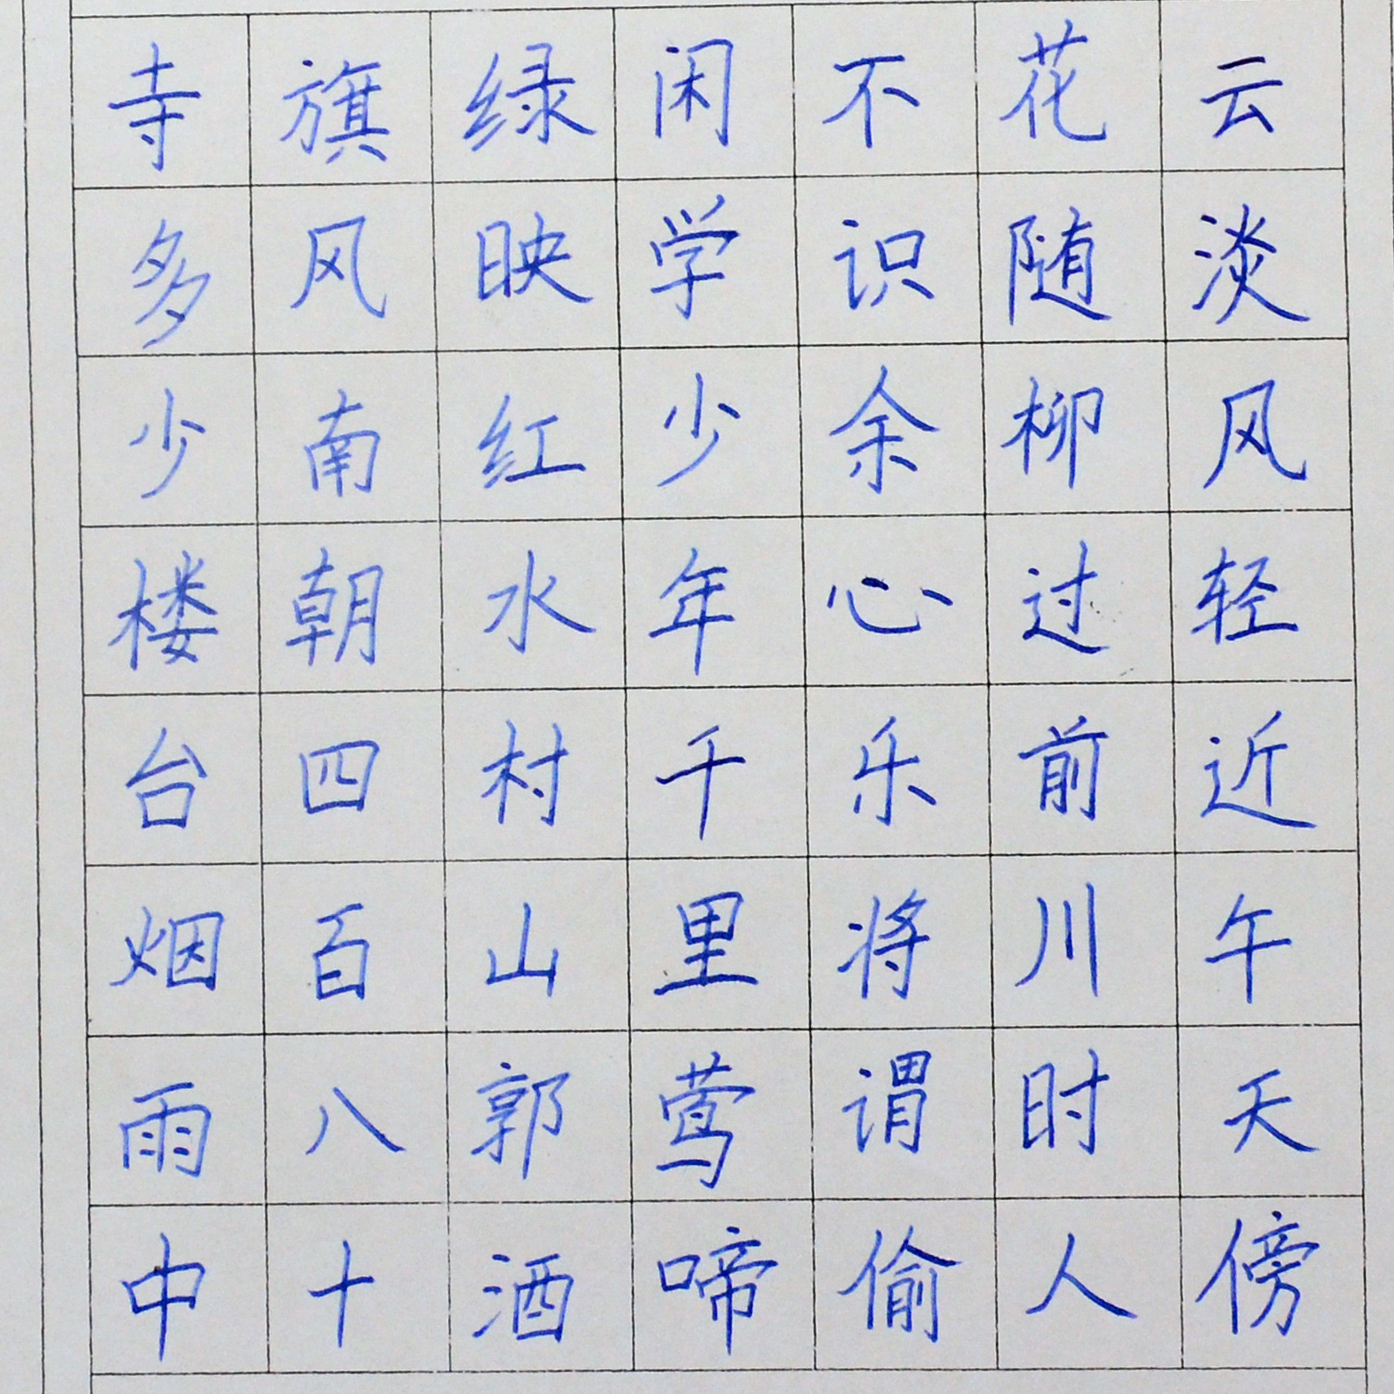 云淡风轻近午天傍
花随柳过前川时人
不识余心乐将谓偷
闲学少年千里莺啼
绿映红水村山郭酒
旗风南朝四百八十
寺多少楼台烟雨中